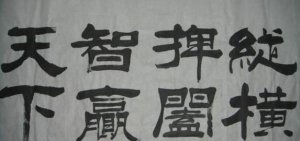 縱橫
捭闔
智贏
天下